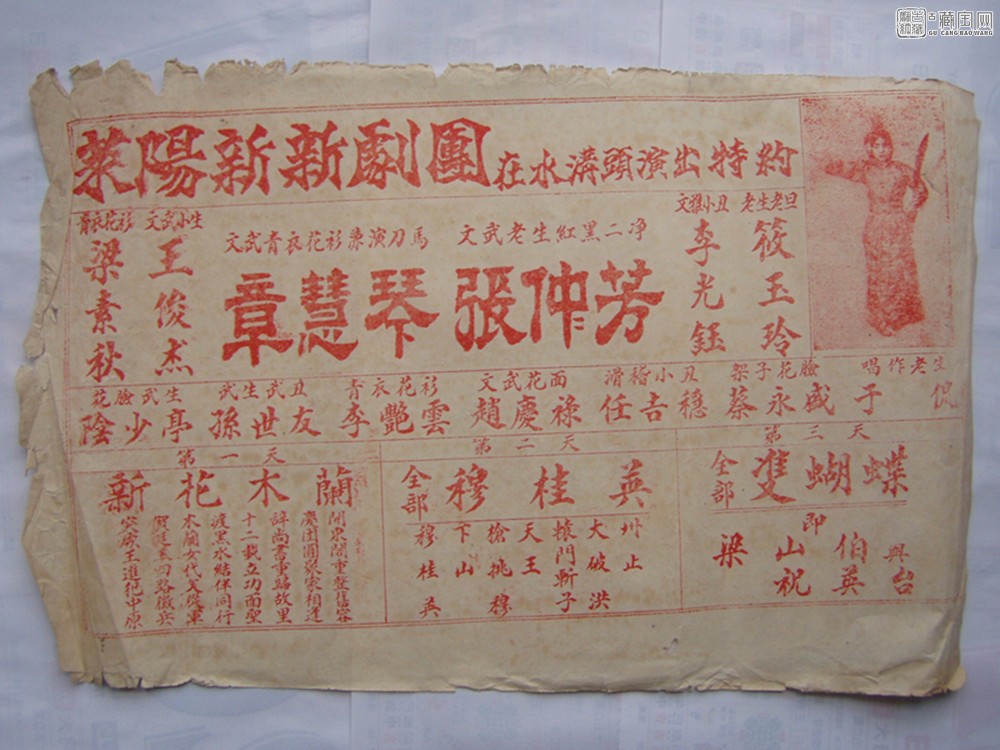 古藏宝网
GU CANG BAO WANG
萊陽新新劇團在水溝頭演出特約
青衣花衫
梁素秋
文武小生
王俊杰
文武青衣花衫兼演刀馬
章慧琴
文武老生紅黑二净
張仲芳
文雅小丑
李光鈺
老生老旦
筱玉玲
花臉武生
陰少亭
武生武丑
孫世友
青衣花衫
李艷雲
文武花面
趙慶祿
滑稽小丑
任吉穩
架子花臉
蔡永盛
唱作老生
子侃
第一天
新花木蘭
突厥王進犯中原
賀廷玉四路徵兵
木蘭女代父從軍
渡黑水結伴同行
十二載立功面聖
辭尚書事歸故里
慶团圓聚家相逢
開東閣重整舊容
第二天
全部穆桂英
穆桂英
下山
槍挑穆
天王
轅門斬子
大破洪
州止
第三天
全部雙蝴蝶
即
梁山伯與
祝英台